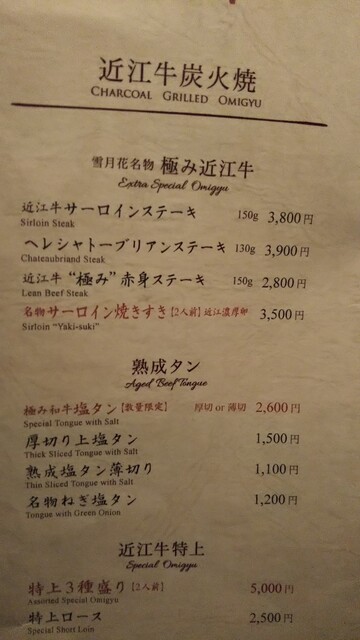 近江牛炭火焼
CHARCOAL GRILLED OMIGYU
雪月花名物 極み近江牛
Extra Special Omigyu
近江牛サーロインステーキ 150g 3,800円
Sirloin Steak
ヘレシャトーブリアンステーキ 130g 3,900円
Chateaubriand Steak
近江牛“極み”赤身ステーキ 150g 2,800円
Lean Beef Steak
名物サーロイン焼きすき【2人前】近江濃厚卵 3,500円
Sirloin "Yaki-suki"
熟成タン
Aged Beef Tongue
極み和牛塩タン【数量限定】 厚切 or 薄切 2,600円
Special Tongue with Salt
厚切り上塩タン 1,500円
Thick Sliced Tongue with Salt
熟成塩タン薄切り 1,100円
Thin Sliced Tongue with Salt
名物ねぎ塩タン 1,200円
Tongue with Green Onion
近江牛特上
Special Omigyu
特上3種盛り【2人前】 5,000円
Assorted Special Omigyu
特上ロース 2,500円
Special Short Loin